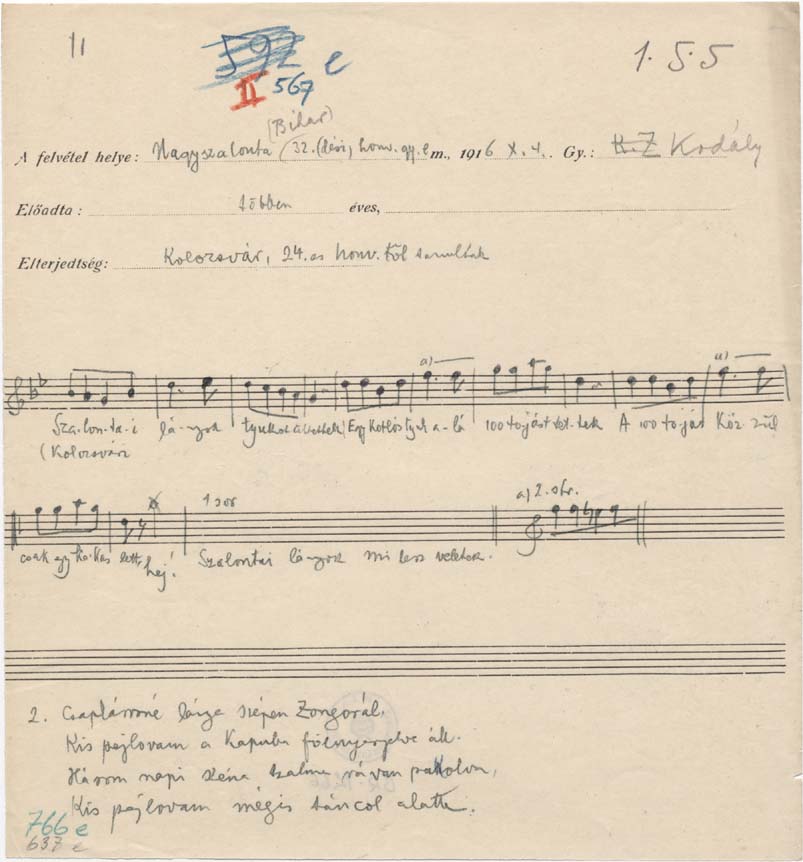 11
592 e
1. 5. 5
II 567
(Bihar)
A felvétel helye: Nagyszalonta (32. (dési) honv. gy. e m., 1916 X. 4. Gy.: K.Z Kodály
Előadta: többen éves,
Elterjedtség: Kolozsvár, 24.es honv. től tanulták
a) a)
Sza-lon-ta-i lá-nyok tyukot ültettek Egy kotlós tyuk a-lá 100 tojást tet-tek A 100 to-jás Köz-zül
(Kolozsvári
1 sor a) 2. str.
csak egy ka-kas lett, hej! Szalontai lá-nyok mi lesz veletek.
2. Csaplárosné lánya szépen Zongorál,
Kis pejlovam a Kapuba fölnyergelve áll.
Három napi széna szalma rá van pakolva,
Kis pejlovam mégis táncol alatta.
766 e
637 e